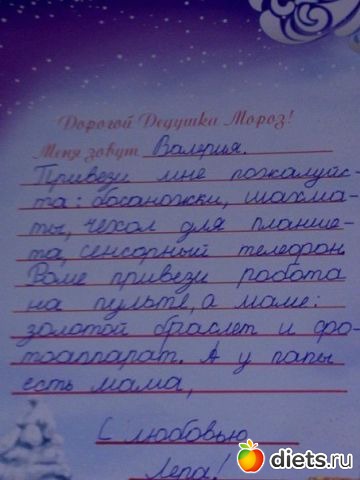 Дорогой Дедушка Мороз!
Меня зовут Валерия.
Привези мне пожалуйс-
та: босоножки, шахма-
ты, чехол для планше-
та, сенсорный телефон.
Роме привези робота
на пульте, а маме:
золотой браслет и фо-
тоаппарат. А у папы
есть мама,
С любовью
Лера!
diets.ru